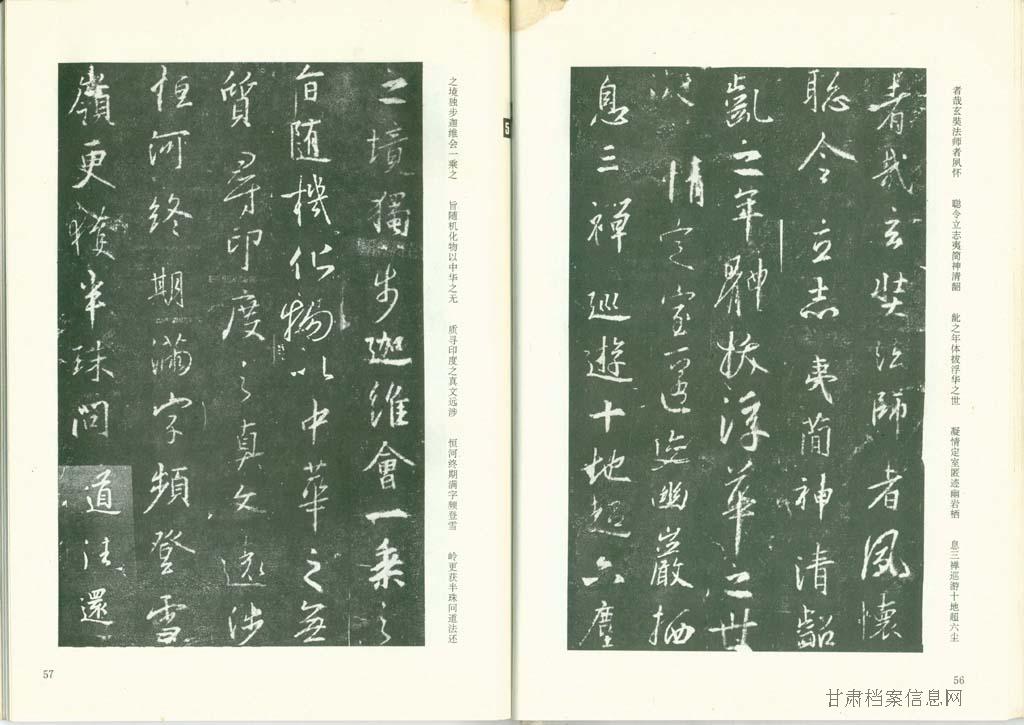 者哉玄奘法师者夙怀 聪令立志夷简神清龆 龀之年体拔浮华之世 凝情定室匿迹幽岩栖 息三禅巡游十地超六尘
者哉玄奘法師者夙懷
聡令立志夷簡神清齠
齓之年體拔浮華之世
凝情定室匿迹幽巖栖
息三禪巡遊十地超六塵
56
之境独步迦维会一乘之 旨随机化物以中华之无 质寻印度之真文远涉 恒河终期满字频登雪 岭更获半珠问道法还
之境獨步迦維會一乘之
旨随機化物以中華之無
質尋印度之真文遠涉
恒河終期滿字頻登雪
嶺更獲半珠問道法還
57
5
甘肃档案信息网